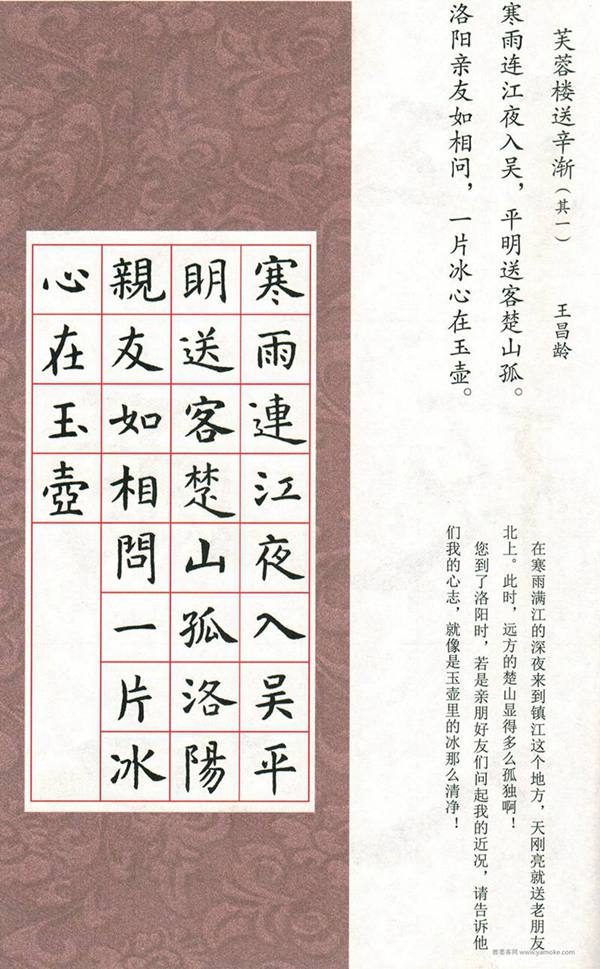 芙蓉楼送辛渐（其一） 王昌龄
寒雨连江夜入吴，平明送客楚山孤。
洛阳亲友如相问，一片冰心在玉壶。
在寒雨满江的深夜来到镇江这个地方，天刚亮就送老朋友
北上。此时，远方的楚山显得多么孤独啊！
您到了洛阳时，若是亲朋好友们问起我的近况，请告诉他
们我的心志，就像是玉壶里的冰那么清净！
寒雨連江夜入吴平
明送客楚山孤洛陽
親友如相問一片冰
心在玉壺
雅墨客网 www.yamoke.com